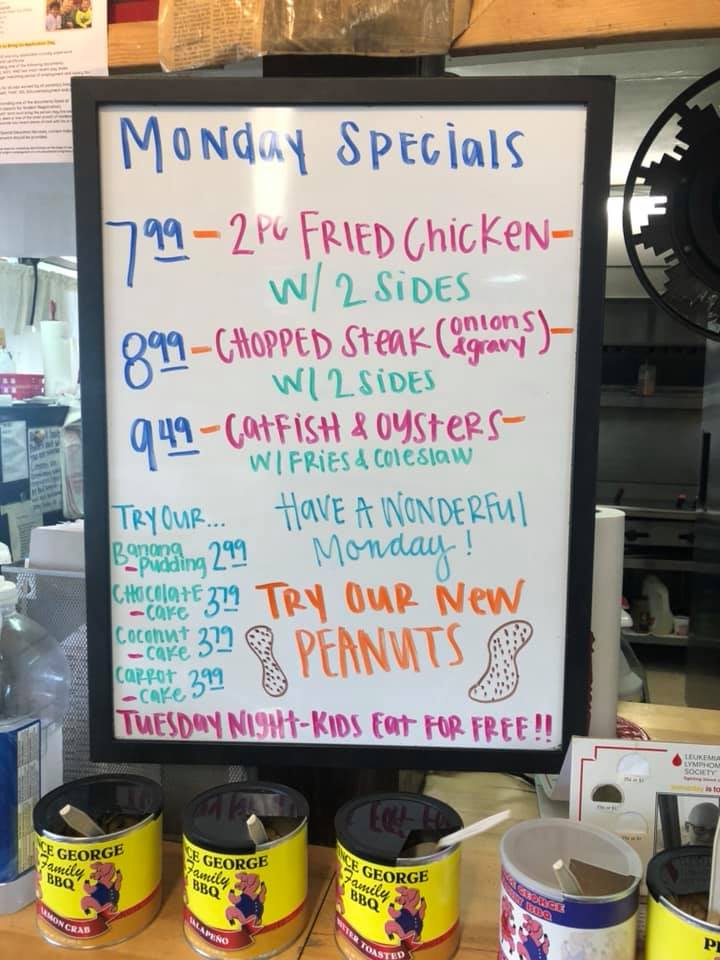 Monday Specials
7.99 - 2 PC FRIED Chicken-
W/ 2 SiDES
8.99 - CHOPPED Steak (onions & gravy)-
W/ 2 SiDES
9.49 - CatFisH & OysteRS-
W/ FRiES & ColeslaW
TRY OUR...
Banana
-Pudding 2.99
CHOCOlatE
-cake 3.79
Coconut
-cake 3.79
CaRRot
-cake 3.99
HavE A WONDERFUl
Monday!
TRy OuR NeW
PEANUTS
TUESDAY NIGHT-KIDS Eat FOR FREE!!
LEUKEMIA
LYMPHOM
SOCIETY
someday is to
NCE GEORGE
Family
BBQ
LEMON CRAB
CE GEORGE
Family
BBQ
JALAPEÑO
NCE GEORGE
Family
BBQ
TOASTED
GEORGE
BBQ